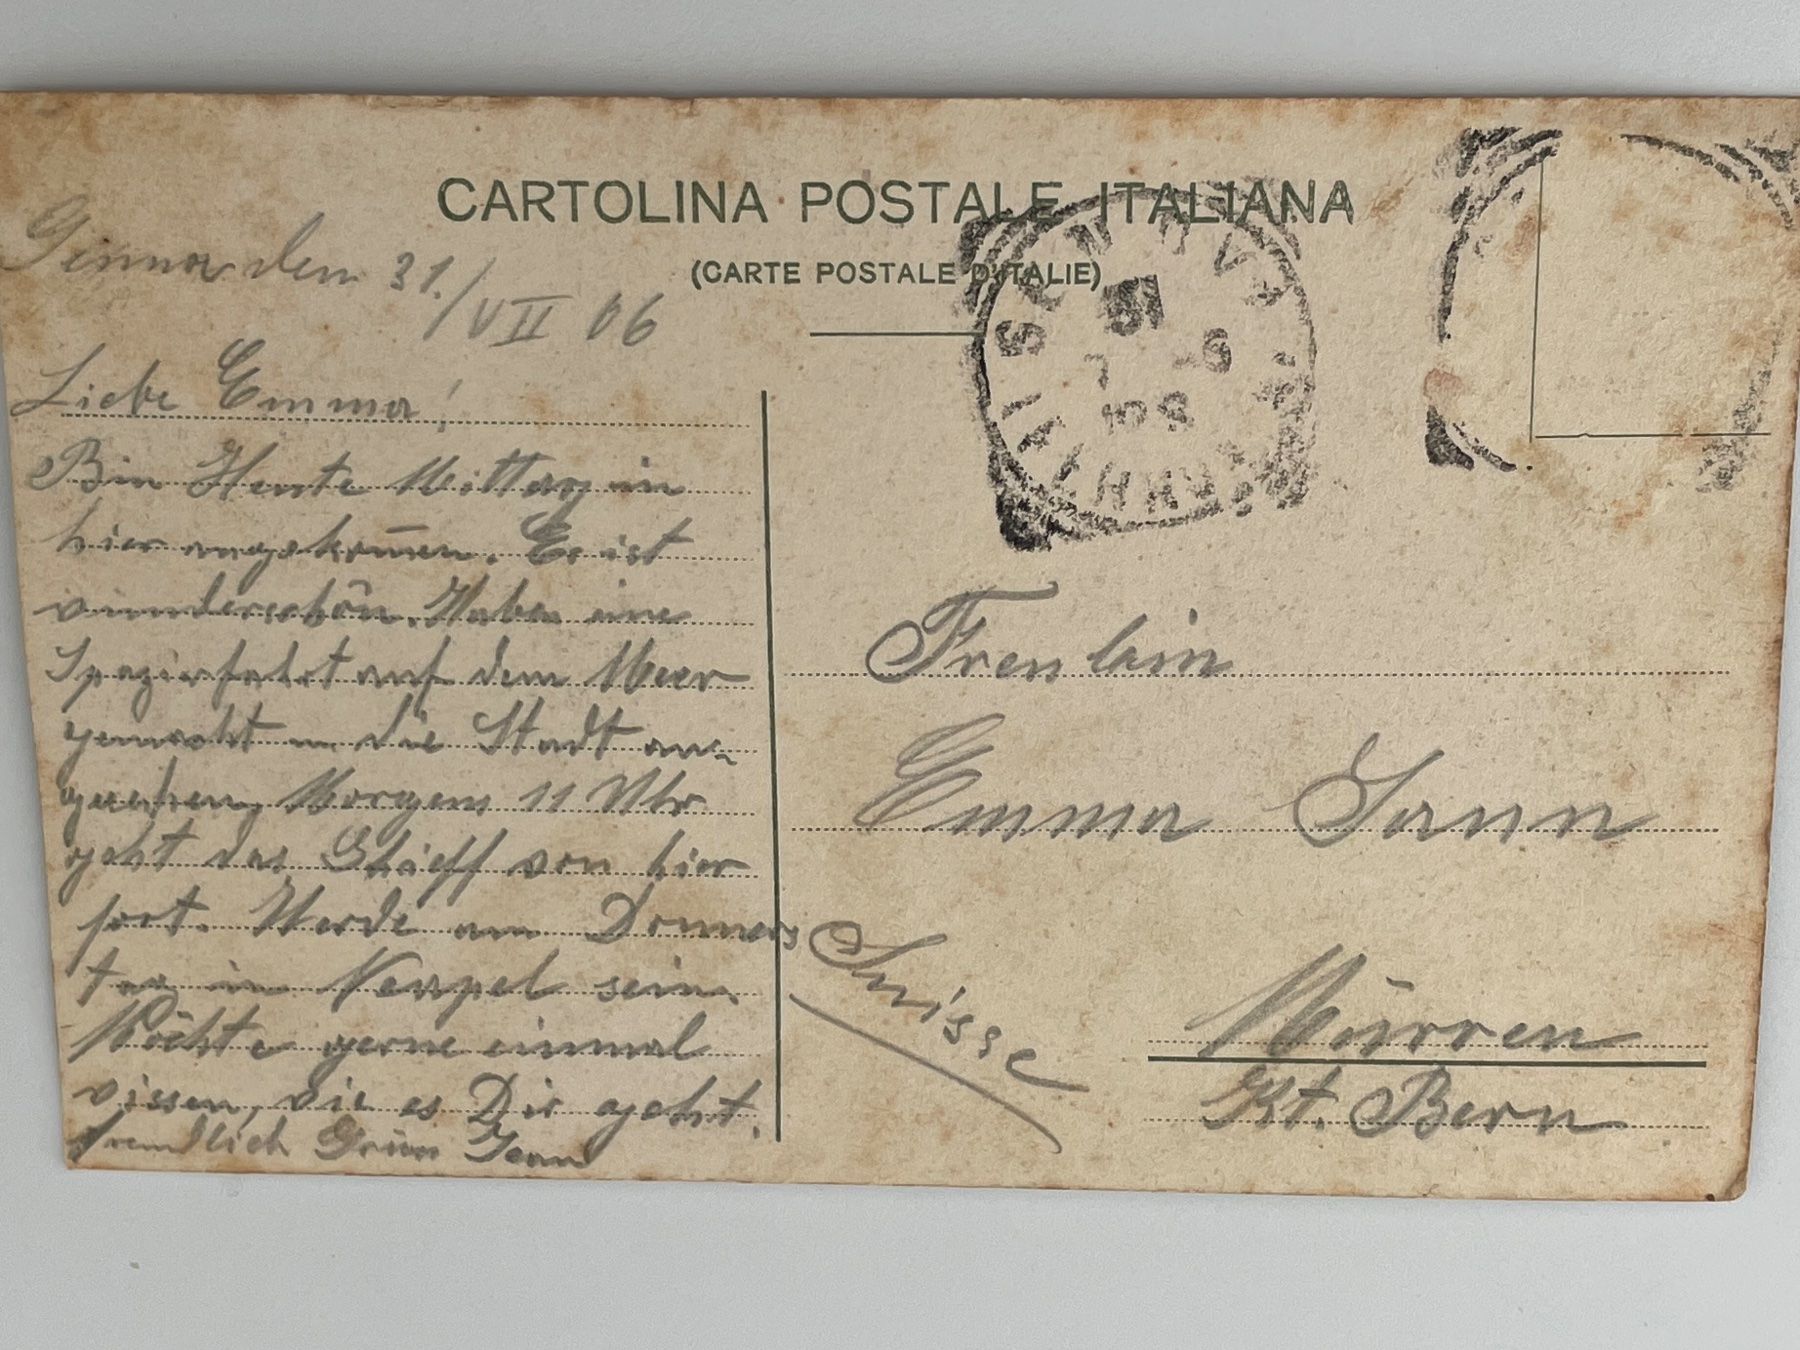 CARTOLINA POSTALE ITALIANA
(CARTE POSTALE D'ITALIE)
Genua den 31./VII 06
Liebe Emma!
Bin Heute Mittag in
hier angekom̄en. Es ist
wunderschön. Habe eine
Spazierfahrt auf dem Meer
gemacht u. die Stadt an-
gesehen, Morgens 11 Uhr
geht das Schiff von hier
fort. Werde am Donners
tag in Neapel sein.
Möchte gerne einmal
wissen, wie es Dir geht.
Freundlich Grüsse
Freulein
Emma
Suisse
Mürren
Kt. Bern